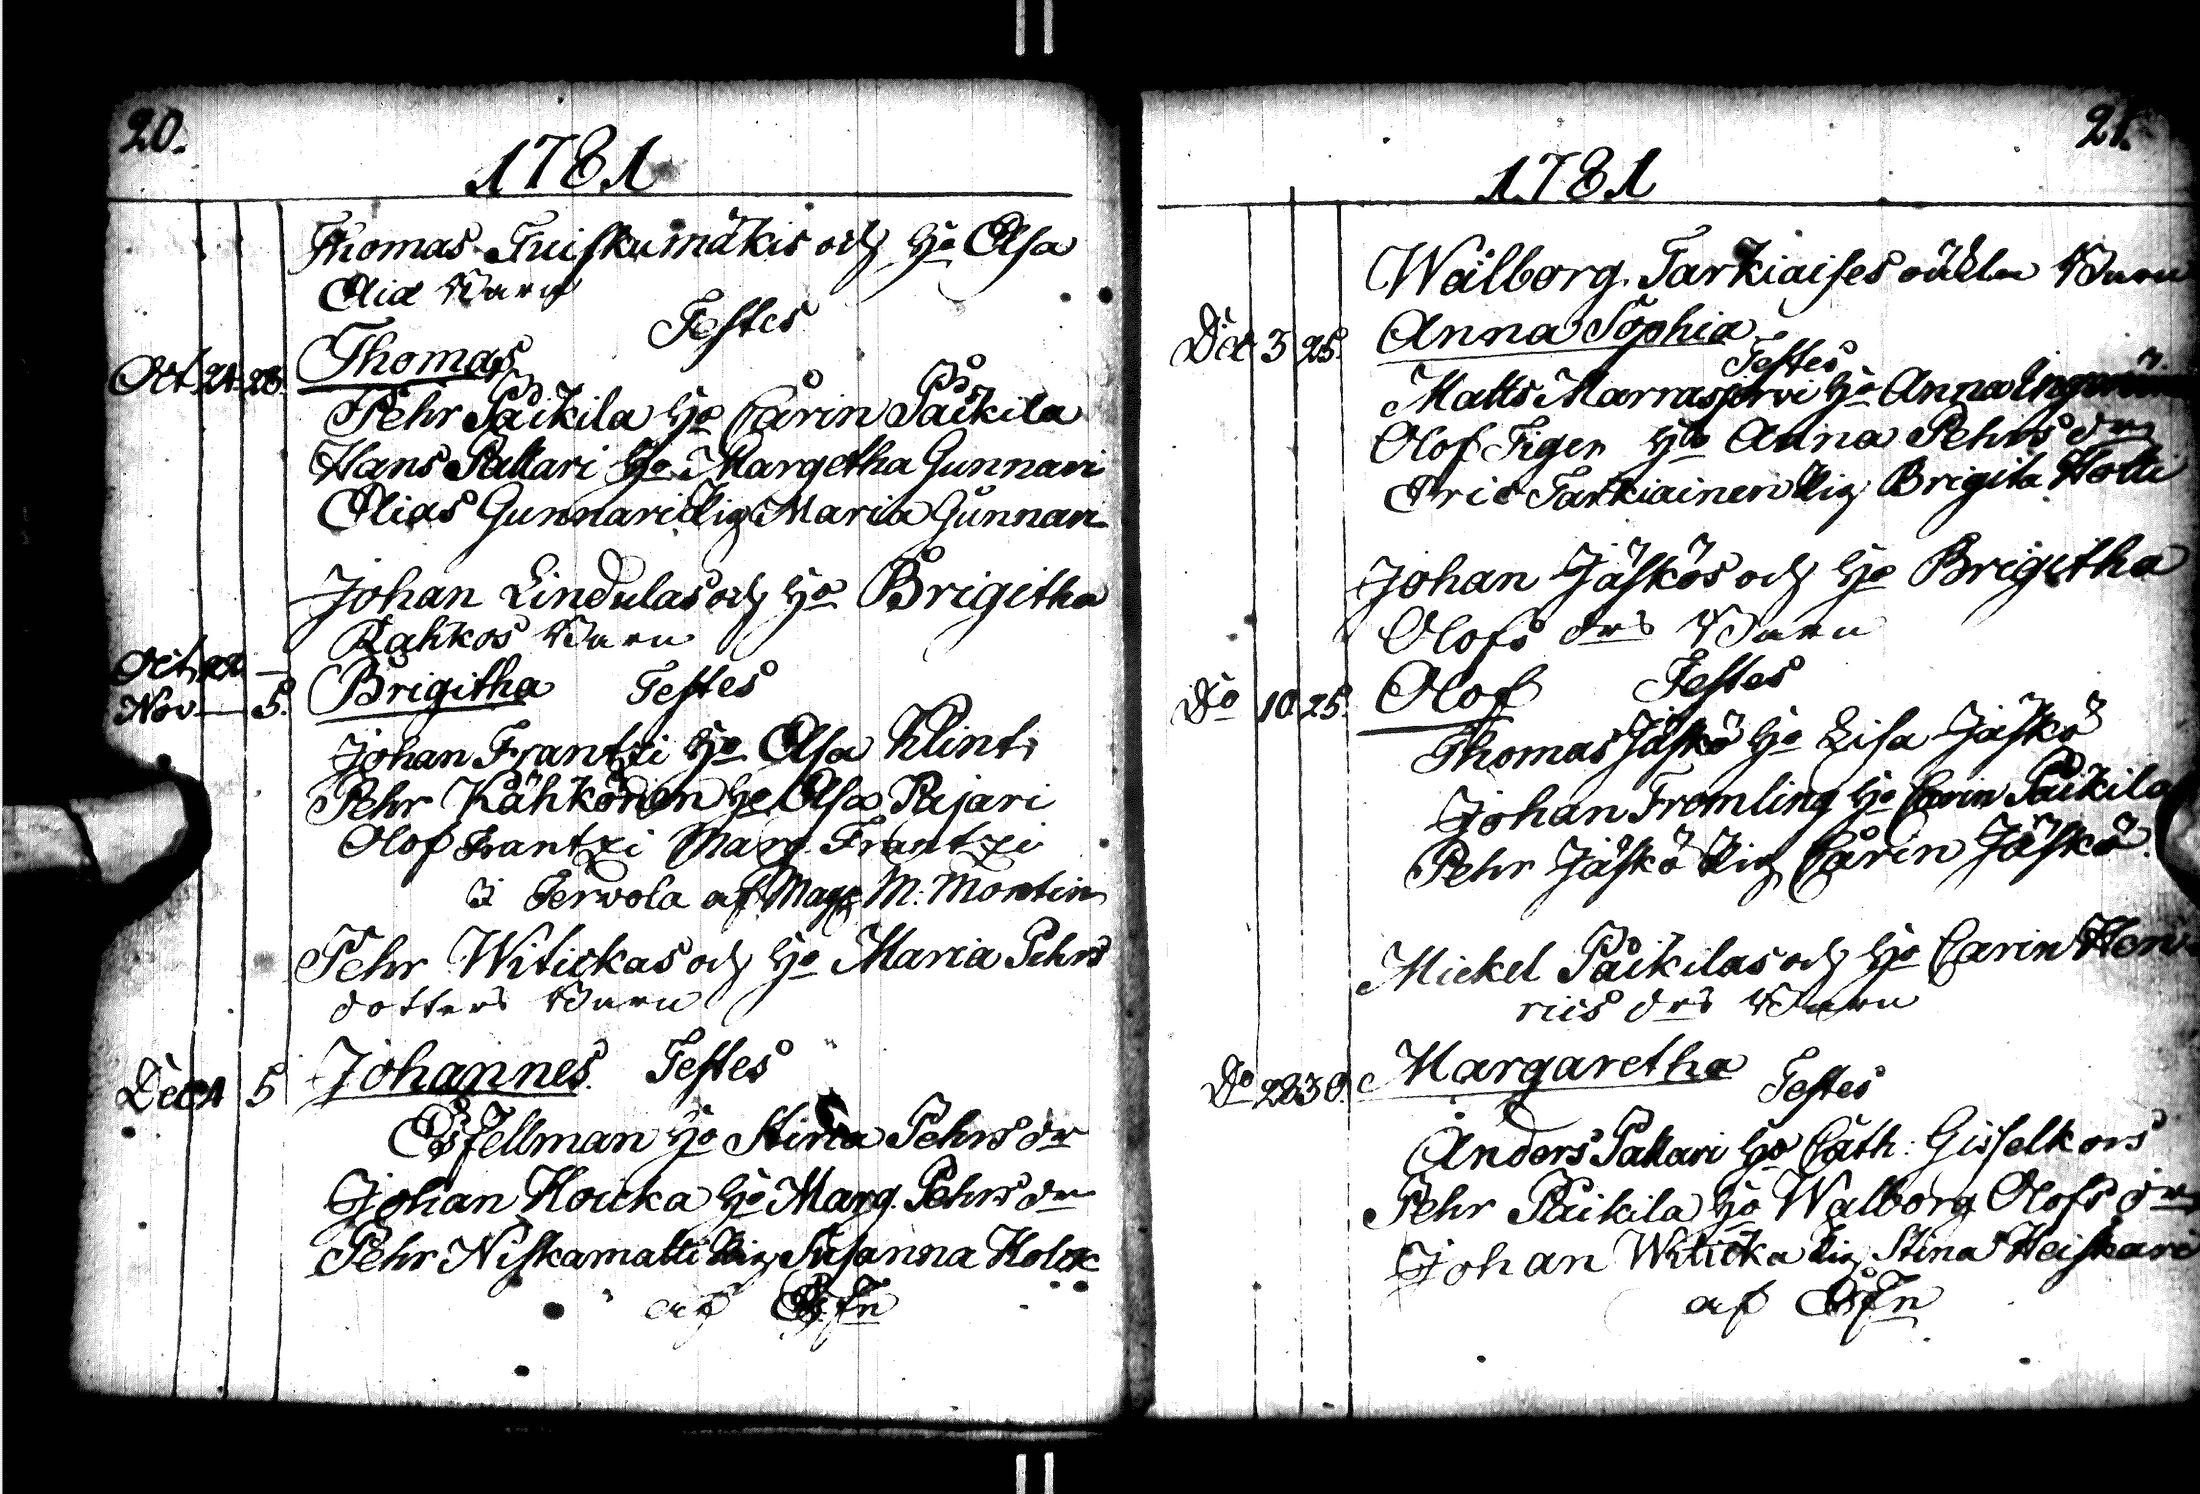 20.
1781
Thomas Tuiskumäkis och H:o Elsa
Elia Barn
Testes
Oct 24 28. Thomas
Pehr Paikila H:o Carin Paikila
Hans Pattari H:o Margetha Gunnari
Elias Gunnari Pig Maria Gunnari
Johan Lindulas och H:o Brigitha
Kahkos Barn
Oct
Nov 5. Brigitha Testes
Johan Frantzi H:o Elsa Klint
Pehr Kähkönen H:o Elsa Pajari
Olof Frantzi Marg. Frantzi
i Tervola af Mag M: Montin
Pehr Witickas och H:o Maria Pehrs
dotters Barn
Dec 1 5 Johannes. Testes
Es Fellman H:o Stina Pehrs dr
Johan Koucka H:o Marg. Pehrs dr
Pehr Niskamatti Pig Susanna
af Es. Fn
21.
1781
Walborg Tarkiaises oäkta Barn
Dec 3 25. Anna Sophia
Testes
Matts Marrasjärvi H:o Anna
Olof Tiger H:o Anna Pehrs dr
Eric Tarkiainen Pig Brigita Holti
Johan Jäskös och H:o Brigitha
Olofs drs Barn
D:o 10 25. Olof Testes
Thomas Jäskö H:o Lisa Jäskö
Johan Fromling H:o Carin Paikila
Pehr Jäskö Pig Carin Jäskö.
Mickel Paikilas och H:o Carin Hen
rics drs Barn
D:o 28 30. Margaretha Testes
Anders Pattari H:o Cath: Gisselkors
Pehr Paikila H:o Walborg Olofs dr
Johan Witicka Pig Stina Heiskari
af Es Fn